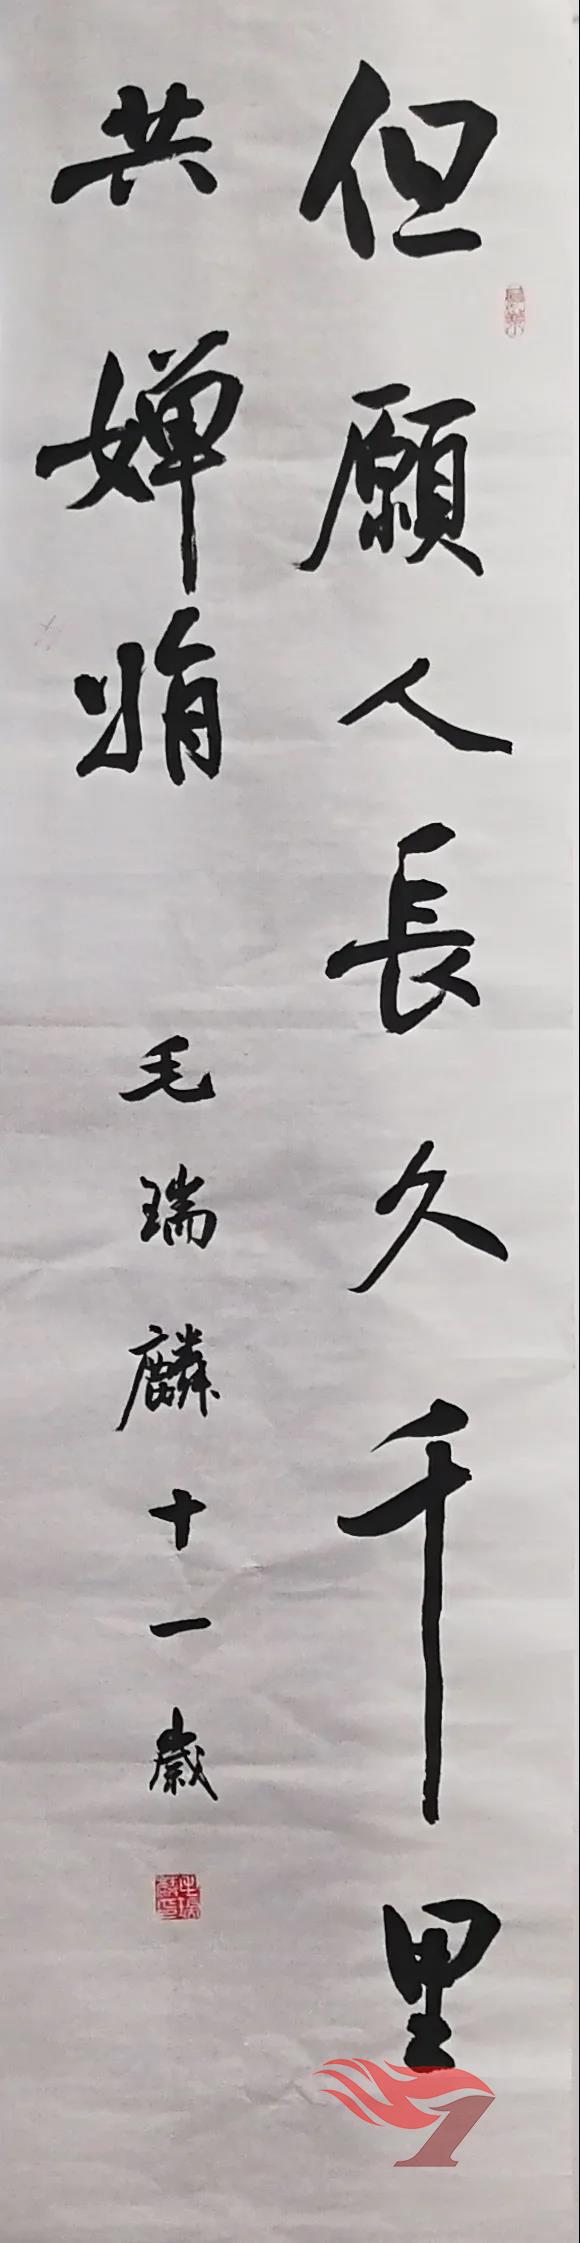 但願人長久千里
共嬋娟
毛瑞麟十一歲